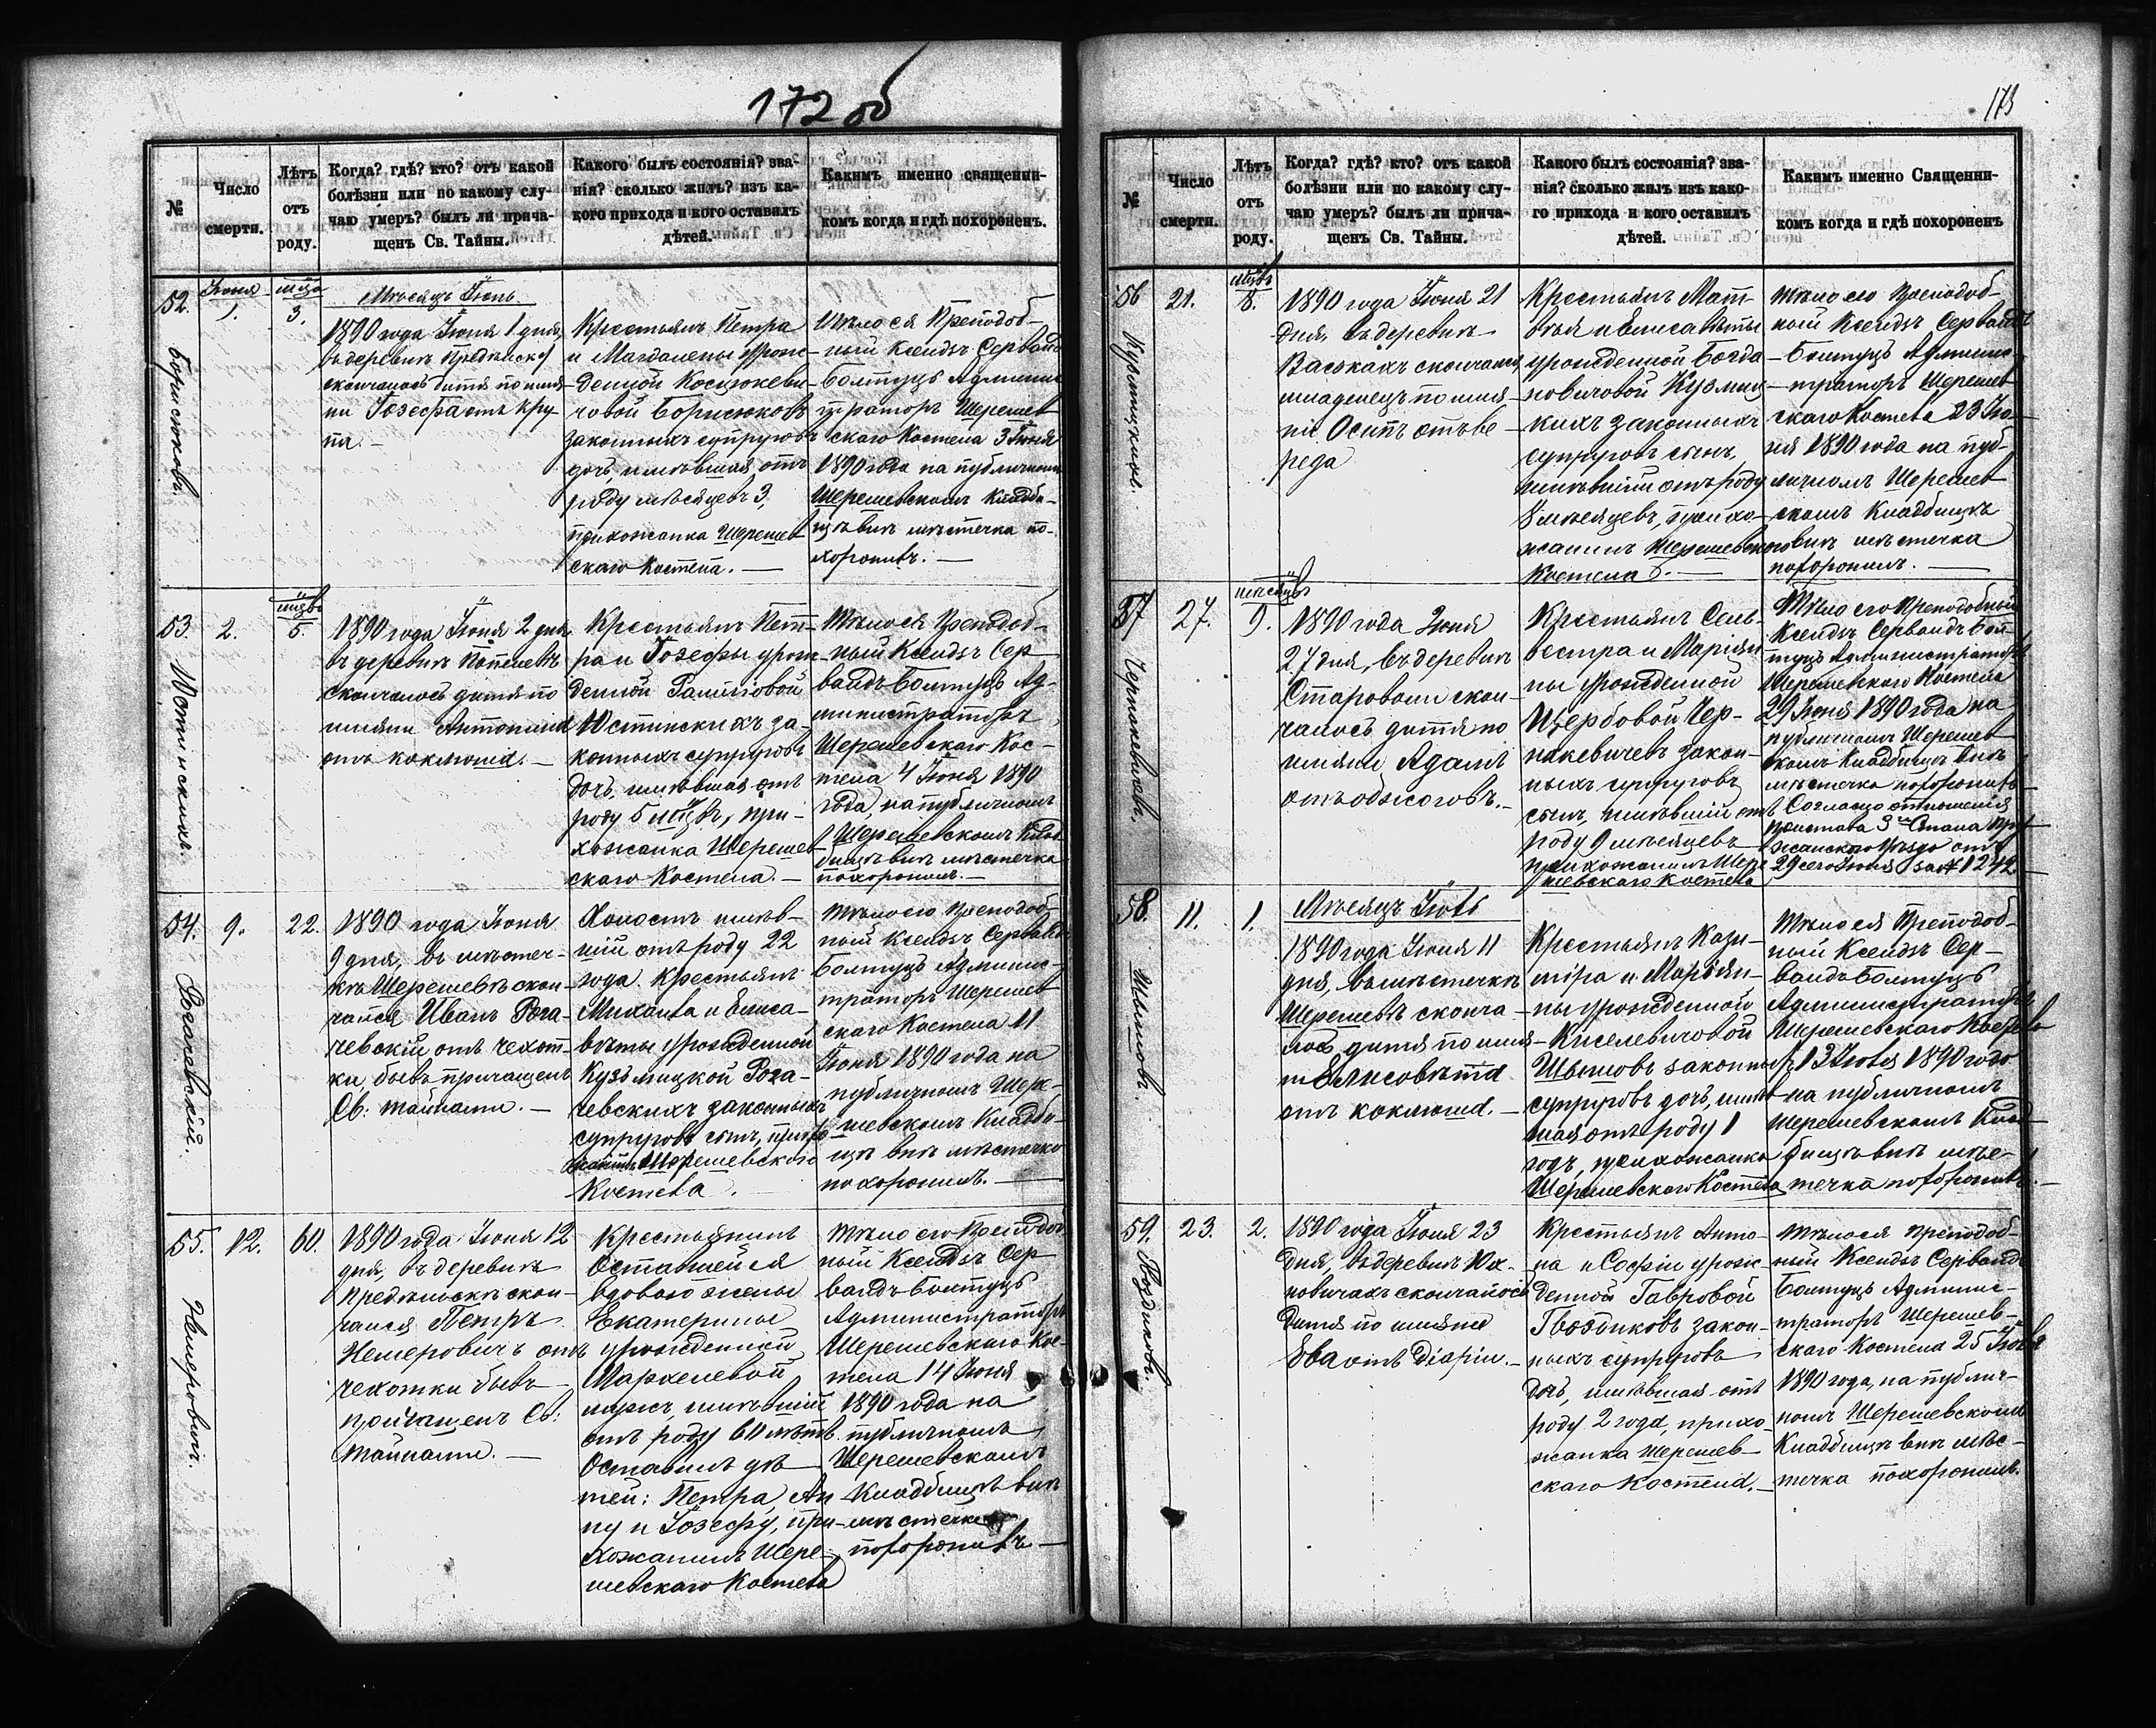 172 об
№
Число
смерти.
Лѣтъ
отъ
роду.
Когда? гдѣ? кто? отъ какой
болѣзни или по какому слу-
чаю умеръ? былъ ли прича-
щенъ Св. Тайны.
Какого былъ состоянія? зва-
нія? сколько жилъ? изъ ка-
кого прихода и кого оставилъ
дѣтей.
Какимъ именно священни-
комъ когда и гдѣ похороненъ.
52.
Борисюковъ.
Іюня
1.
3.
Мѣсяцъ Іюнь.
1890 года Іюня 1 дня,
въ деревнѣ
скончалось дитя по име-
ни Іозефа отъ кру-
па. —
Крестьянъ Петра
и Магдалены урож-
денной Косцюкеви-
човой Борисюковъ
законныхъ супруговъ
дочь, имѣвшая отъ
роду мѣсяцевъ 3,
прихожанка Шерешев-
скаго Костела. —
Тѣло ея Преподоб-
ный Ксендзъ Сервандъ
Болтуць Админис-
траторъ Шерешев-
скаго Костела 3 Іюня
1890 года на публичномъ
Шерешевскомъ Кладби-
щѣ внѣ мѣстечка по-
хоронилъ. —
53.
Юстинская.
2.
5.
1890 года Іюня 2 дня
въ деревнѣ
скончалось дитя по
имяни Антонина
отъ коклюша. —
Крестьянъ Пет-
ра и Іозефы урож-
денной
Юстинскихъ за-
конныхъ супруговъ
дочь, имѣвшая отъ
роду 5 мцвъ, при-
хожанка Шерешев-
скаго Костела. —
Тѣло ея Преподоб-
ный Ксендзъ Сер-
вандъ Болтуць Ад-
министраторъ
Шерешевскаго Кос-
тела 4 Іюня 1890
года, на публичномъ
Шерешевскомъ Клад-
бищѣ внѣ мѣстечка
похоронилъ. —
54.
Рогачевскій.
9.
22.
1890 года Іюня
9 дня, въ мѣстеч-
кѣ Шерешевѣ скон-
чался Иванъ Рога-
чевскій отъ чехот-
ки, бывъ причащенъ
Св: тайнами. —
Холостъ имѣв-
шій отъ роду 22
года. Крестьянъ
Михаила и Елиса-
вѣты урожденной
Кузьмицкой Рога-
чевскихъ законныхъ
супруговъ сынъ, прихо-
жанинъ Шерешевскаго
Костела. —
Тѣло его Преподоб-
ный Ксендзъ Сервандъ
Болтуць Админис-
траторъ Шерешев-
скаго Костела 11
Іюня 1890 года на
публичномъ Шере-
шевскомъ Кладби-
щѣ внѣ мѣстечка
похоронилъ. —
55.
Немеровичъ.
12.
60.
1890 года Іюня 12
дня, въ деревнѣ
скон-
чался Петръ
Немеровичъ отъ
чехотки бывъ
причащенъ Св:
тайнами. —
Крестьянинъ
Оставшейся
вдовою жены
Екатерины
урожденной
мужъ, имѣвшій
отъ роду 60 лѣтъ.
Оставилъ дѣ-
тей: Петра, Ан-
ну и Іозефу, при-
хожанинъ Шере-
шевскаго Костела
Тѣло его Преподоб-
ный Ксендзъ Сер-
вандъ Болтуць
Администраторъ
Шерешевскаго Кос-
тела 14 Іюня
1890 года на
публичномъ
Шерешевскомъ
Кладбищѣ внѣ
мѣстечка
похоронилъ. —
173
№
Число
смерти.
Лѣтъ
отъ
роду.
Когда? гдѣ? кто? отъ какой
болѣзни или по какому слу-
чаю умеръ? былъ ли прича-
щенъ Св. Тайны.
Какого былъ состоянія? зва-
нія? сколько жилъ изъ како-
го прихода и кого оставилъ
дѣтей.
Какимъ именно Священни-
комъ когда и гдѣ похороненъ
56
21.
8.
1890 года Іюня 21
дня, въ деревнѣ
Васькахъ скончался
младенецъ по име-
ни Осипъ отъ ве-
реда
Крестьянъ Мат-
вѣя и Елисаветы
урожденной Богда-
новичовой Кузмиц-
кихъ законныхъ
супруговъ сынъ,
имѣвшій отъ роду
8 мѣсяцевъ, прихо-
жанинъ Шерешевскаго
Костела. —
Тѣло его Преподоб-
ный Ксендзъ Сервандъ
Болтуць Админис-
траторъ Шерешев-
скаго Костела 23 Ію-
ня 1890 года на пуб-
личномъ Шерешев-
скомъ Кладбищѣ
внѣ мѣстечка
похоронилъ. —
57
27.
9.
1890 года Іюня
27 дня, въ деревнѣ
Староволи скон-
чалось дитя по
имяни Адамъ
отъ обжоговъ. —
Крестьянъ Силь-
вестра и Маріан-
ны урожденной
Щербовой Чер-
накевичевъ закон-
ныхъ супруговъ
сынъ, имѣвшій отъ
роду 9 мѣсяцевъ
прихожанинъ Шере-
шевскаго Костела
Тѣло его Преподобный
Ксендзъ Сервандъ Бол-
туць Администраторъ
Шерешевскаго Костела
29 Іюня 1890 года на
публичномъ Шерешев-
скомъ Кладбищѣ внѣ
мѣстечка похоронилъ
Согласно отношенія
Пристава 3 Стана Пру-
жанскаго Уѣзда отъ
29 сего Іюня за № 1242
58.
11.
1.
Мѣсяцъ Іюль
1890 года Іюля 11
дня, въ мѣстечкѣ
Шерешевѣ сконча-
лось дитя по имя-
ни Елисовѣта
отъ коклюша. —
Крестьянъ Кази-
міра и Маріан-
ны урожденной
Киселевичовой
законныхъ
супруговъ дочь, имѣв-
шая отъ роду 1
годъ, прихожанка
Шерешевскаго Костела
Тѣло ея Преподоб-
ный Ксендзъ Сер-
вандъ Болтуць
Администраторъ
Шерешевскаго Костела
13 Іюля 1890 года
на публичномъ
Шерешевскомъ Клад-
бищѣ внѣ мѣс-
течка похоронилъ. —
59.
Гвоздиковъ.
23.
2.
1890 года Іюля 23
дня, въ деревнѣ Юх-
новичахъ скончалось
дитя по имяни
Ева отъ діаріи. —
Крестьянъ Анто-
на и Софіи урож-
денной Гавровой
Гвоздиковъ закон-
ныхъ супруговъ
дочь, имѣвшая отъ
роду 2 года, прихо-
жанка Шерешев-
скаго Костела. —
Тѣло ея Преподоб-
ный Ксендзъ Сервандъ
Болтуць Админис-
траторъ Шерешев-
скаго Костела 25 Іюля
1890 года, на публич-
номъ Шерешевскомъ
Кладбищѣ внѣ мѣс-
течка похоронилъ.